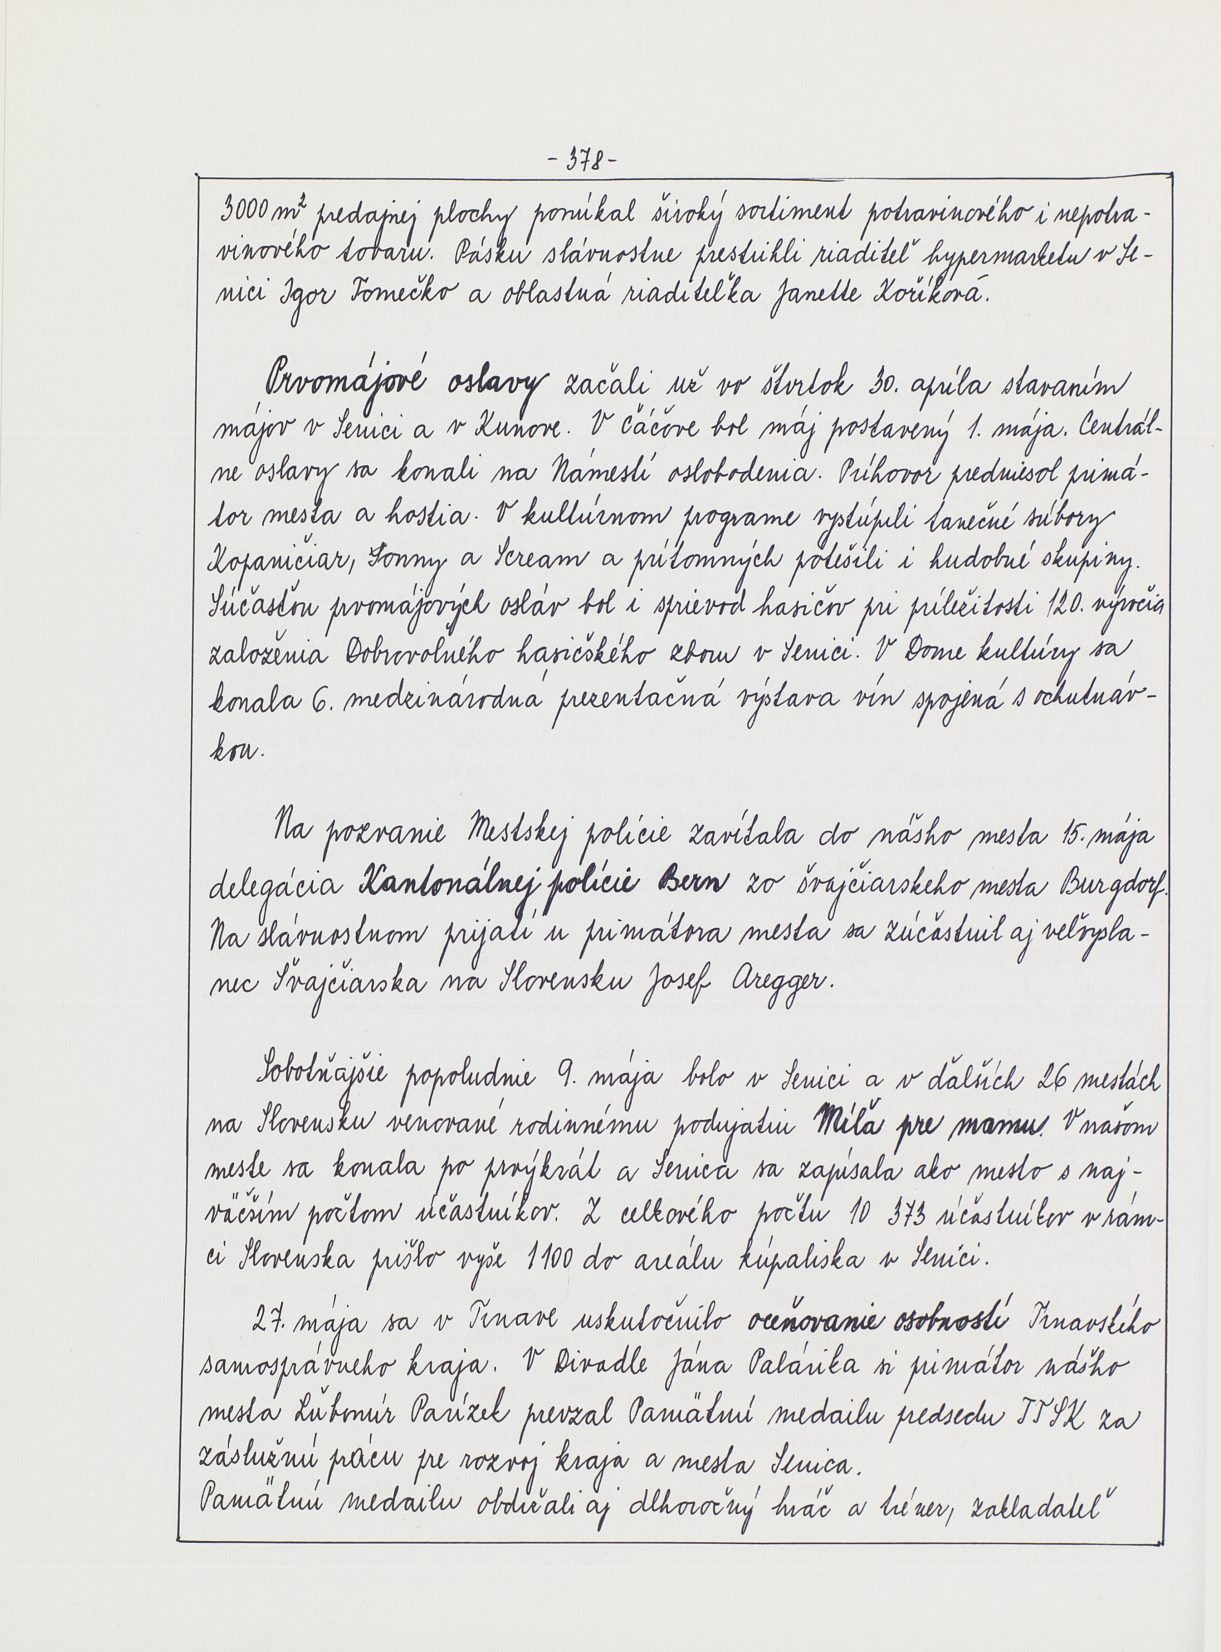 - 378 -
3000 m² predajnej plochy ponúkal široký sortiment potravinového i nepotra-
vinového tovaru. Pásku slávnostne prestrihli riaditeľ hypermarketu v Se-
nici Igor Tomečko a oblastná riaditeľka Janette Koříková.
Prvomájové oslavy začali už vo štvrtok 30. apríla stavaním
májov v Senici a v Kunove. V Čáčove bol máj postavený 1. mája. Centrál-
ne oslavy sa konali na Námestí oslobodenia. Príhovor predniesol primá-
tor mesta a hostia. V kultúrnom programe vystúpili tanečné súbory
Kopaničiar, Sonny a Scream a prítomných potešili i hudobné skupiny.
Súčasťou prvomájových osláv bol i sprievod hasičov pri príležitosti 120. výročia
založenia Dobrovoľného hasičského zboru v Senici. V Dome kultúry sa
konala 6. medzinárodná prezentačná výstava vín spojená s ochutnáv-
kou.
Na pozvanie Mestskej polície zavítala do nášho mesta 15. mája
delegácia Kantonálnej polície Bern zo švajčiarskeho mesta Burgdorf.
Na slávnostnom prijatí u primátora mesta sa zúčastnil aj veľvysla-
nec Švajčiarska na Slovensku Josef Aregger.
Sobotňajšie popoludnie 9. mája bolo v Senici a v ďalších 26 mestách
na Slovensku venované rodinnému podujatiu Míľa pre mamu. V našom
meste sa konala po prvýkrát a Senica sa zapísala ako mesto s naj-
väčším počtom účastníkov. Z celkového počtu 10 373 účastníkov v rám-
ci Slovenska prišlo vyše 1100 do areálu kúpaliska v Senici.
27. mája sa v Trnave uskutočnilo oceňovanie osobností Trnavského
samosprávneho kraja. V Divadle Jána Palárika si primátor nášho
mesta Ľubomír Parízek prevzal Pamätnú medailu predsedu TTSK za
záslužnú prácu pre rozvoj kraja a mesta Senica.
Pamätnú medailu obdržali aj dlhoročný hráč a tréner, zakladateľ